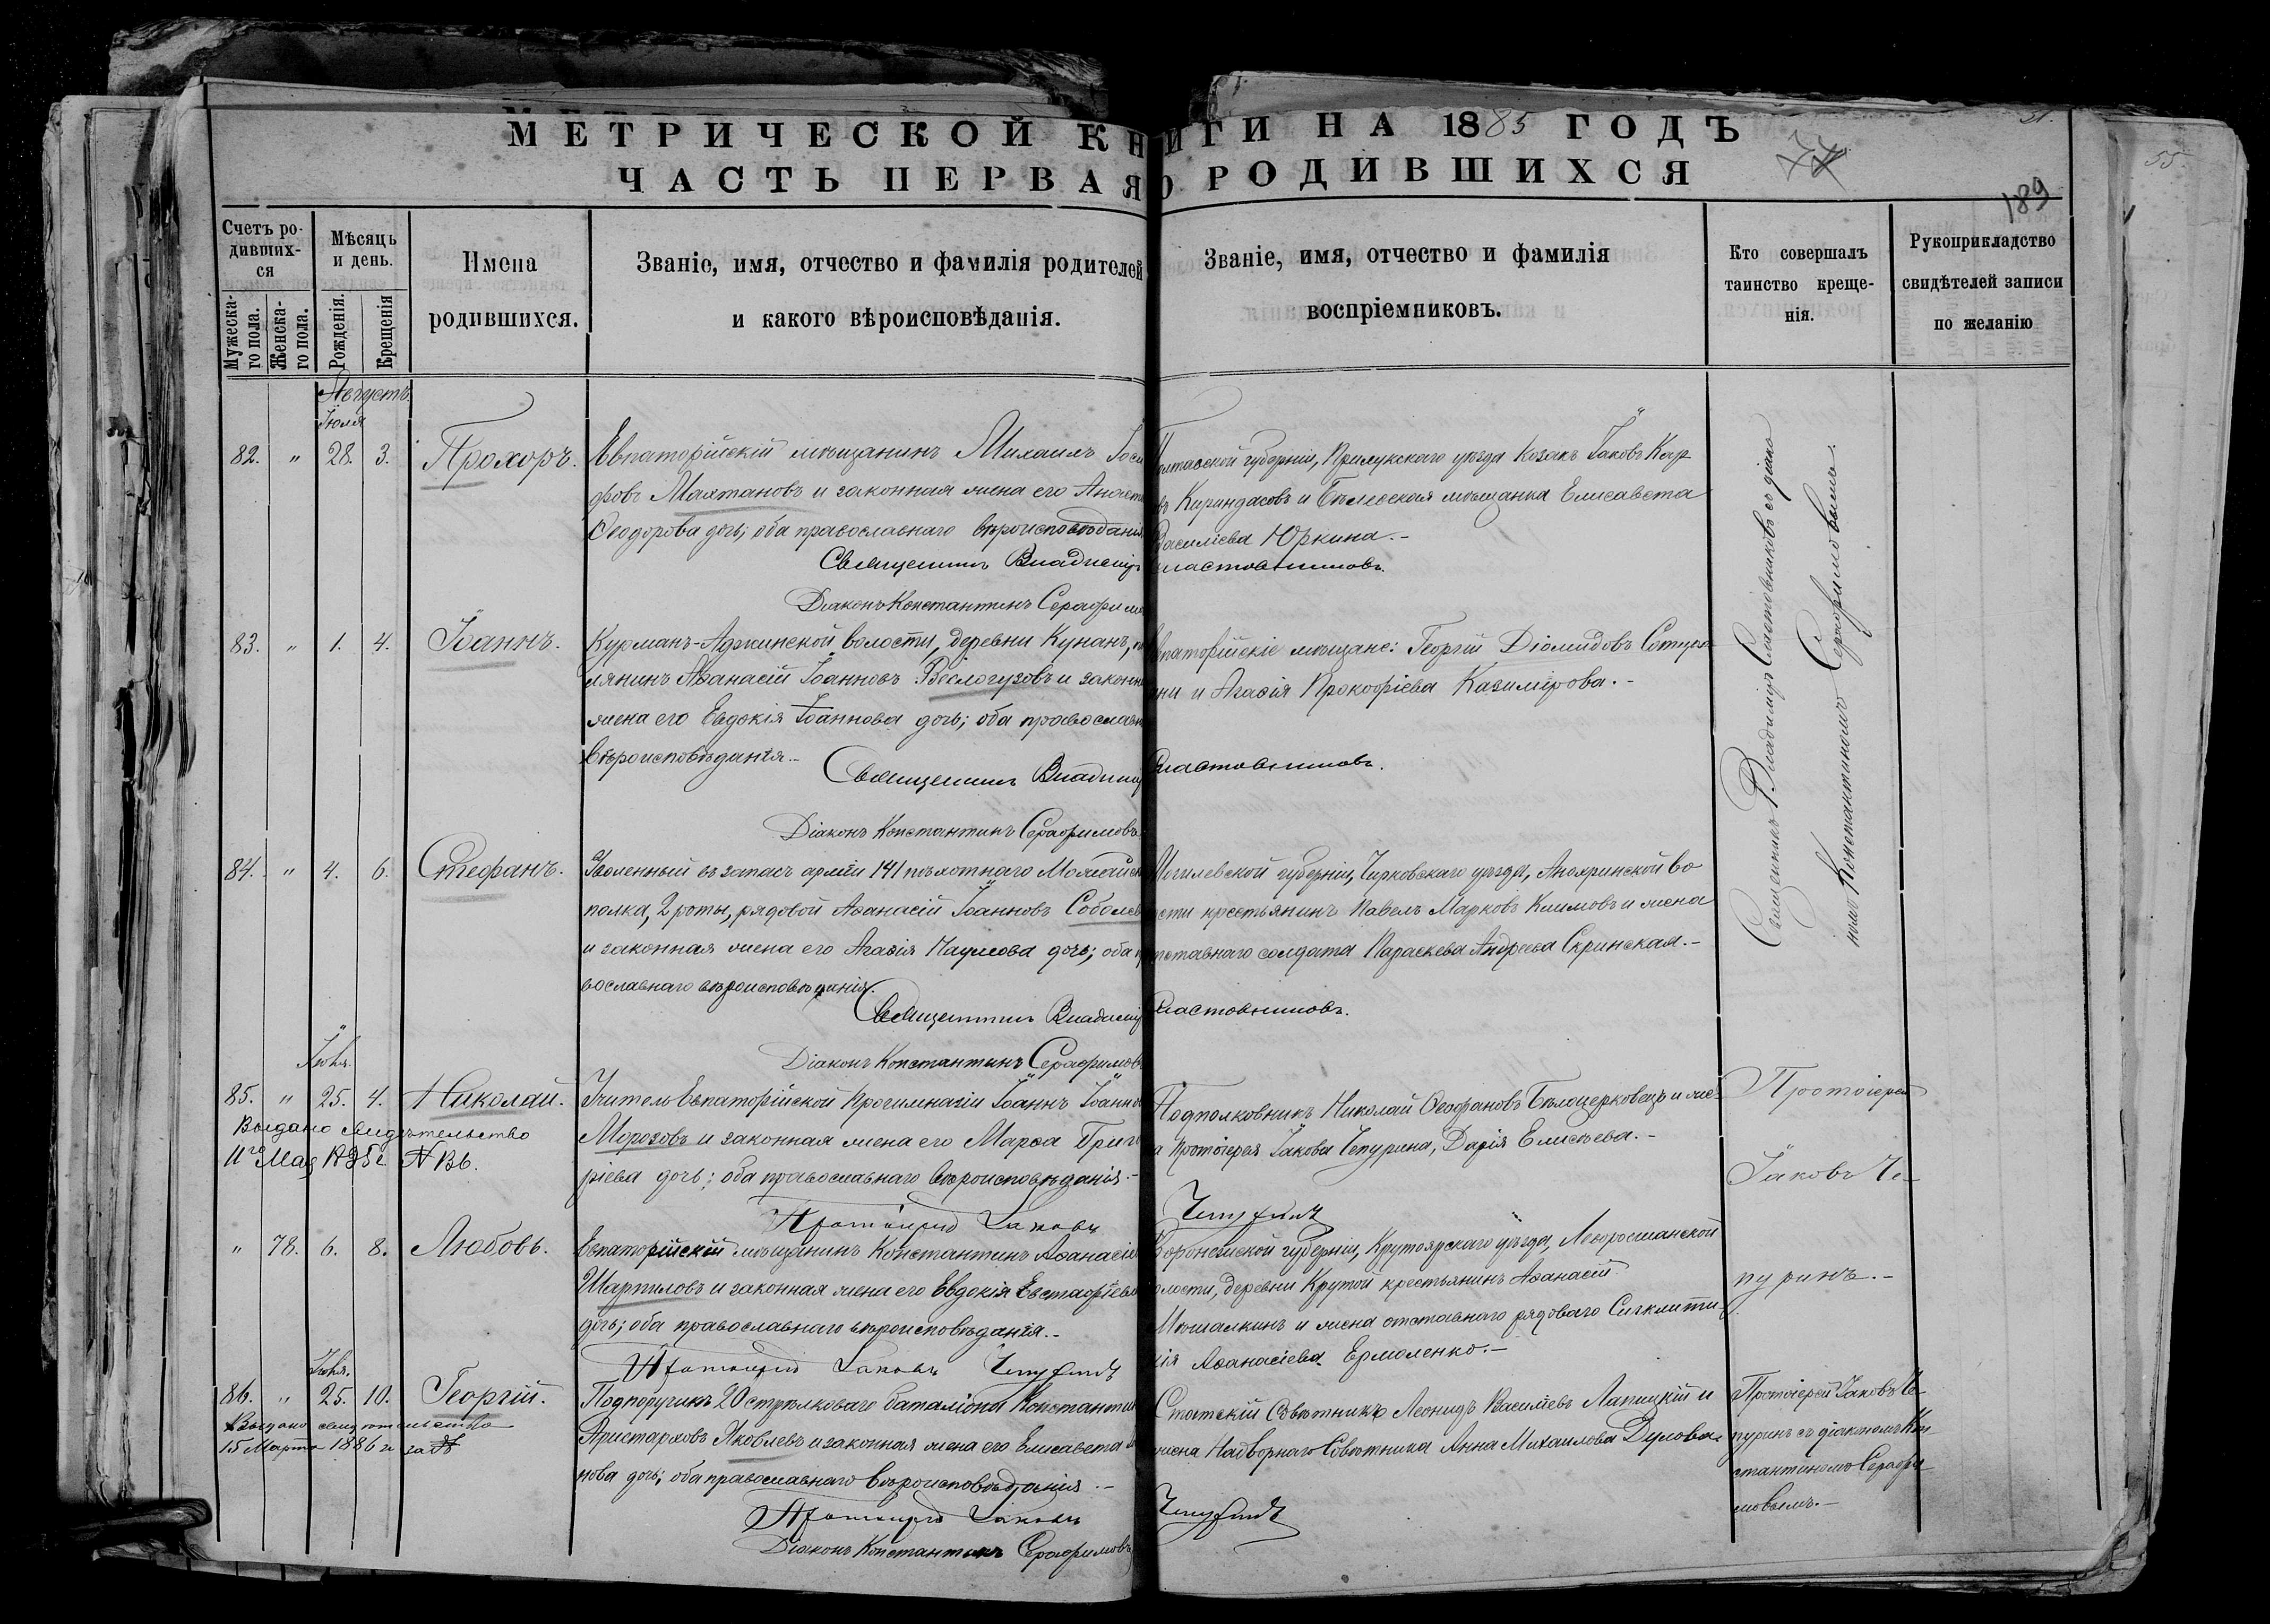 МЕТРИЧЕСКОЙ КНИГИ НА 1885 ГОДЪ
ЧАСТЬ ПЕРВАЯ О РОДИВШИХСЯ
31.
74
189
55.
Счетъ родивших-ся
Мужеска-го пола.
Женска-го пола.
Мѣсяцъ и день.
Рожденія.
Крещенія
Имена родившихся.
Званіе, имя, отчество и фамилія родителей
и какого вѣроисповѣданія.
Званіе, имя, отчество и фамилія
воспріемниковъ.
Кто совершалъ
таинство креще-
нія.
Рукоприкладство
свидѣтелей записи
по желанію
Августъ.
Іюля
82. " 28. 3. Прохоръ.
Евпаторійскій мѣщанинъ Михаилъ
ровъ Махтановъ и законная жена его
Ѳеодорова дочь; оба православнаго вѣроисповѣданія
Священникъ Владиміръ Сластовниковъ.
Діаконъ Константинъ Серафимо
Полтавской губерніи, Прилукскаго уѣзда козакъ Іаковъ
въ Кириндасовъ и мѣщанка Елисавета
Василіева Юркина.-
83. " 1. 4. Іоаннъ.
Курманъ-Аджинской волости, деревни Кунанъ, по
лянинъ Аѳанасій Іоанновъ Веслогузовъ и законн
жена его Евдокія Іоаннова дочь; оба православн
вѣроисповѣданія.-
Священникъ Владиміръ Сластовниковъ.
Діаконъ Константинъ Серафимовъ
Евпаторійскіе мѣщане: Георгій Діомидовъ
ни и Агаѳія Прокофіева Казимірова.-
Священникъ Владиміръ Сластовниковъ съ діако
номъ Константиномъ Серафимовымъ.
84. " 4. 6. Стефанъ.
Уволенный въ запасъ арміи 141 пѣхотнаго Можайск
полка, 2 роты, рядовой Аѳанасій Іоанновъ Соболев
и законная жена его Агаѳія Наумова дочь; оба пр
вославнаго вѣроисповѣданія.
Священникъ Владиміръ Сластовниковъ.
Діаконъ Константинъ Серафимовъ
Могилевской губерніи, уѣзда, во
сти крестьянинъ Павелъ Марковъ Климовъ и жена
отставнаго солдата Параскева Андреева Скринская.-
Іюля.
85. " 25. 4. Николай.
Выдано свидѣтельство
11го Мая
Учитель Евпаторійской Прогимназіи Іоаннъ Іоанно
Морозовъ и законная жена его Марѳа Григо
ріева дочь; оба православнаго вѣроисповѣданія.-
Протоіерей Іаковъ Чепуринъ
Подполковникъ Николай Ѳеофановъ Бѣлоцерковецъ и же-
а Протоіерея Іакова Чепурина, Дарія Елисѣева.-
Протоіерей
Іаковъ Че-
пуринъ.-
" 78. 6. 8. Любовь.
Евпаторійскій мѣщанинъ Константинъ Аѳанасіе
Шарпиловъ и законная жена его Евдокія Евстафіева
дочь; оба православнаго вѣроисповѣданія.-
Протоіерей Іаковъ Чепуринъ
Воронежской губерніи, уѣзда,
волости, деревни Крутой крестьянинъ Аѳанасій
Мошалкинъ и жена отставнаго рядоваго Синклити
кія Аѳанасіева Ермоленко.-
Іюля.
86. " 25. 10. Георгій.
Выдано свидѣтельство
15 Марта 1886 г. за №
Подпоручикъ 20 стрѣлковаго баталіона Константин
Аристарховъ Яковлевъ и законная жена его Елисавета
нова дочь; оба православнаго вѣроисповѣданія.-
Протоіерей Іаковъ Чепуринъ
Діаконъ Константинъ Серафимовъ
Статскій Совѣтникъ Леонидъ Василіевъ Лапицкій и
жена Надворнаго Совѣтника Анна Михаилова Дулова.
Протоіерей Іаковъ Че-
пуринъ съ діакономъ Кон-
стантиномъ Серафи
мовымъ.-